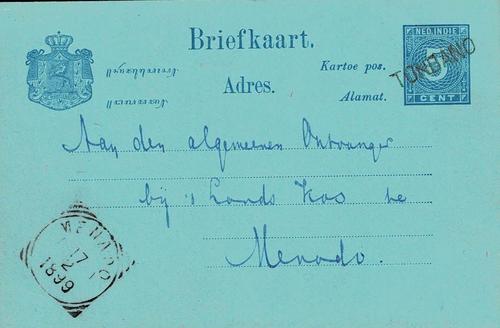 Briefkaart.
NED. INDIE
5
CENT
TONDANO
Kartoe pos.
Adres.
Alamat.
Aan den algemeenen Ontvanger
bij 's Lands Kas te
Menado.
MENADO
17
2
1899